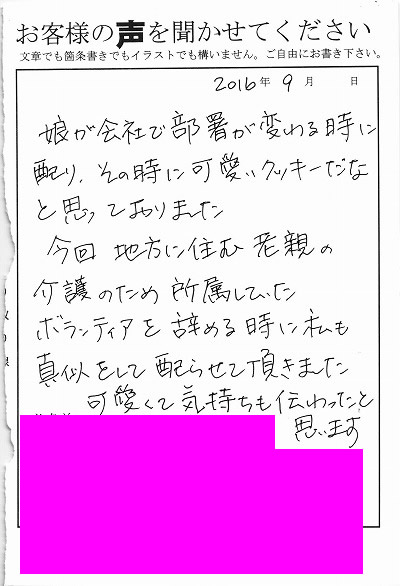 お客様の声を聞かせてください
文章でも箇条書きでもイラストでも構いません。ご自由にお書き下さい。
2016年 9月 日
娘が会社で部署が変わる時に
配り、その時に可愛いクッキーだな
と思っておりました
今回 地方に住む老親の
介護のため所属していた
ボランティアを辞める時に私も
真似をして配らせて頂きました
可愛くて気持ちも伝わったと
思います